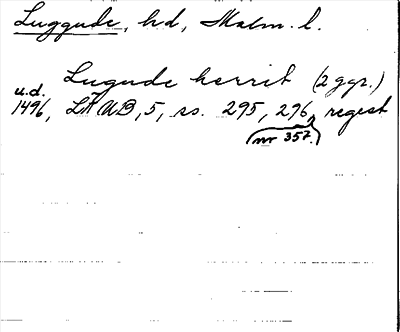 Luggude, hd, Malm. l.
Lugude herrit (2 ggr.)
u.d.
1496, LÄUB, 5, ss. 295, 296, regest
(nr 357.)